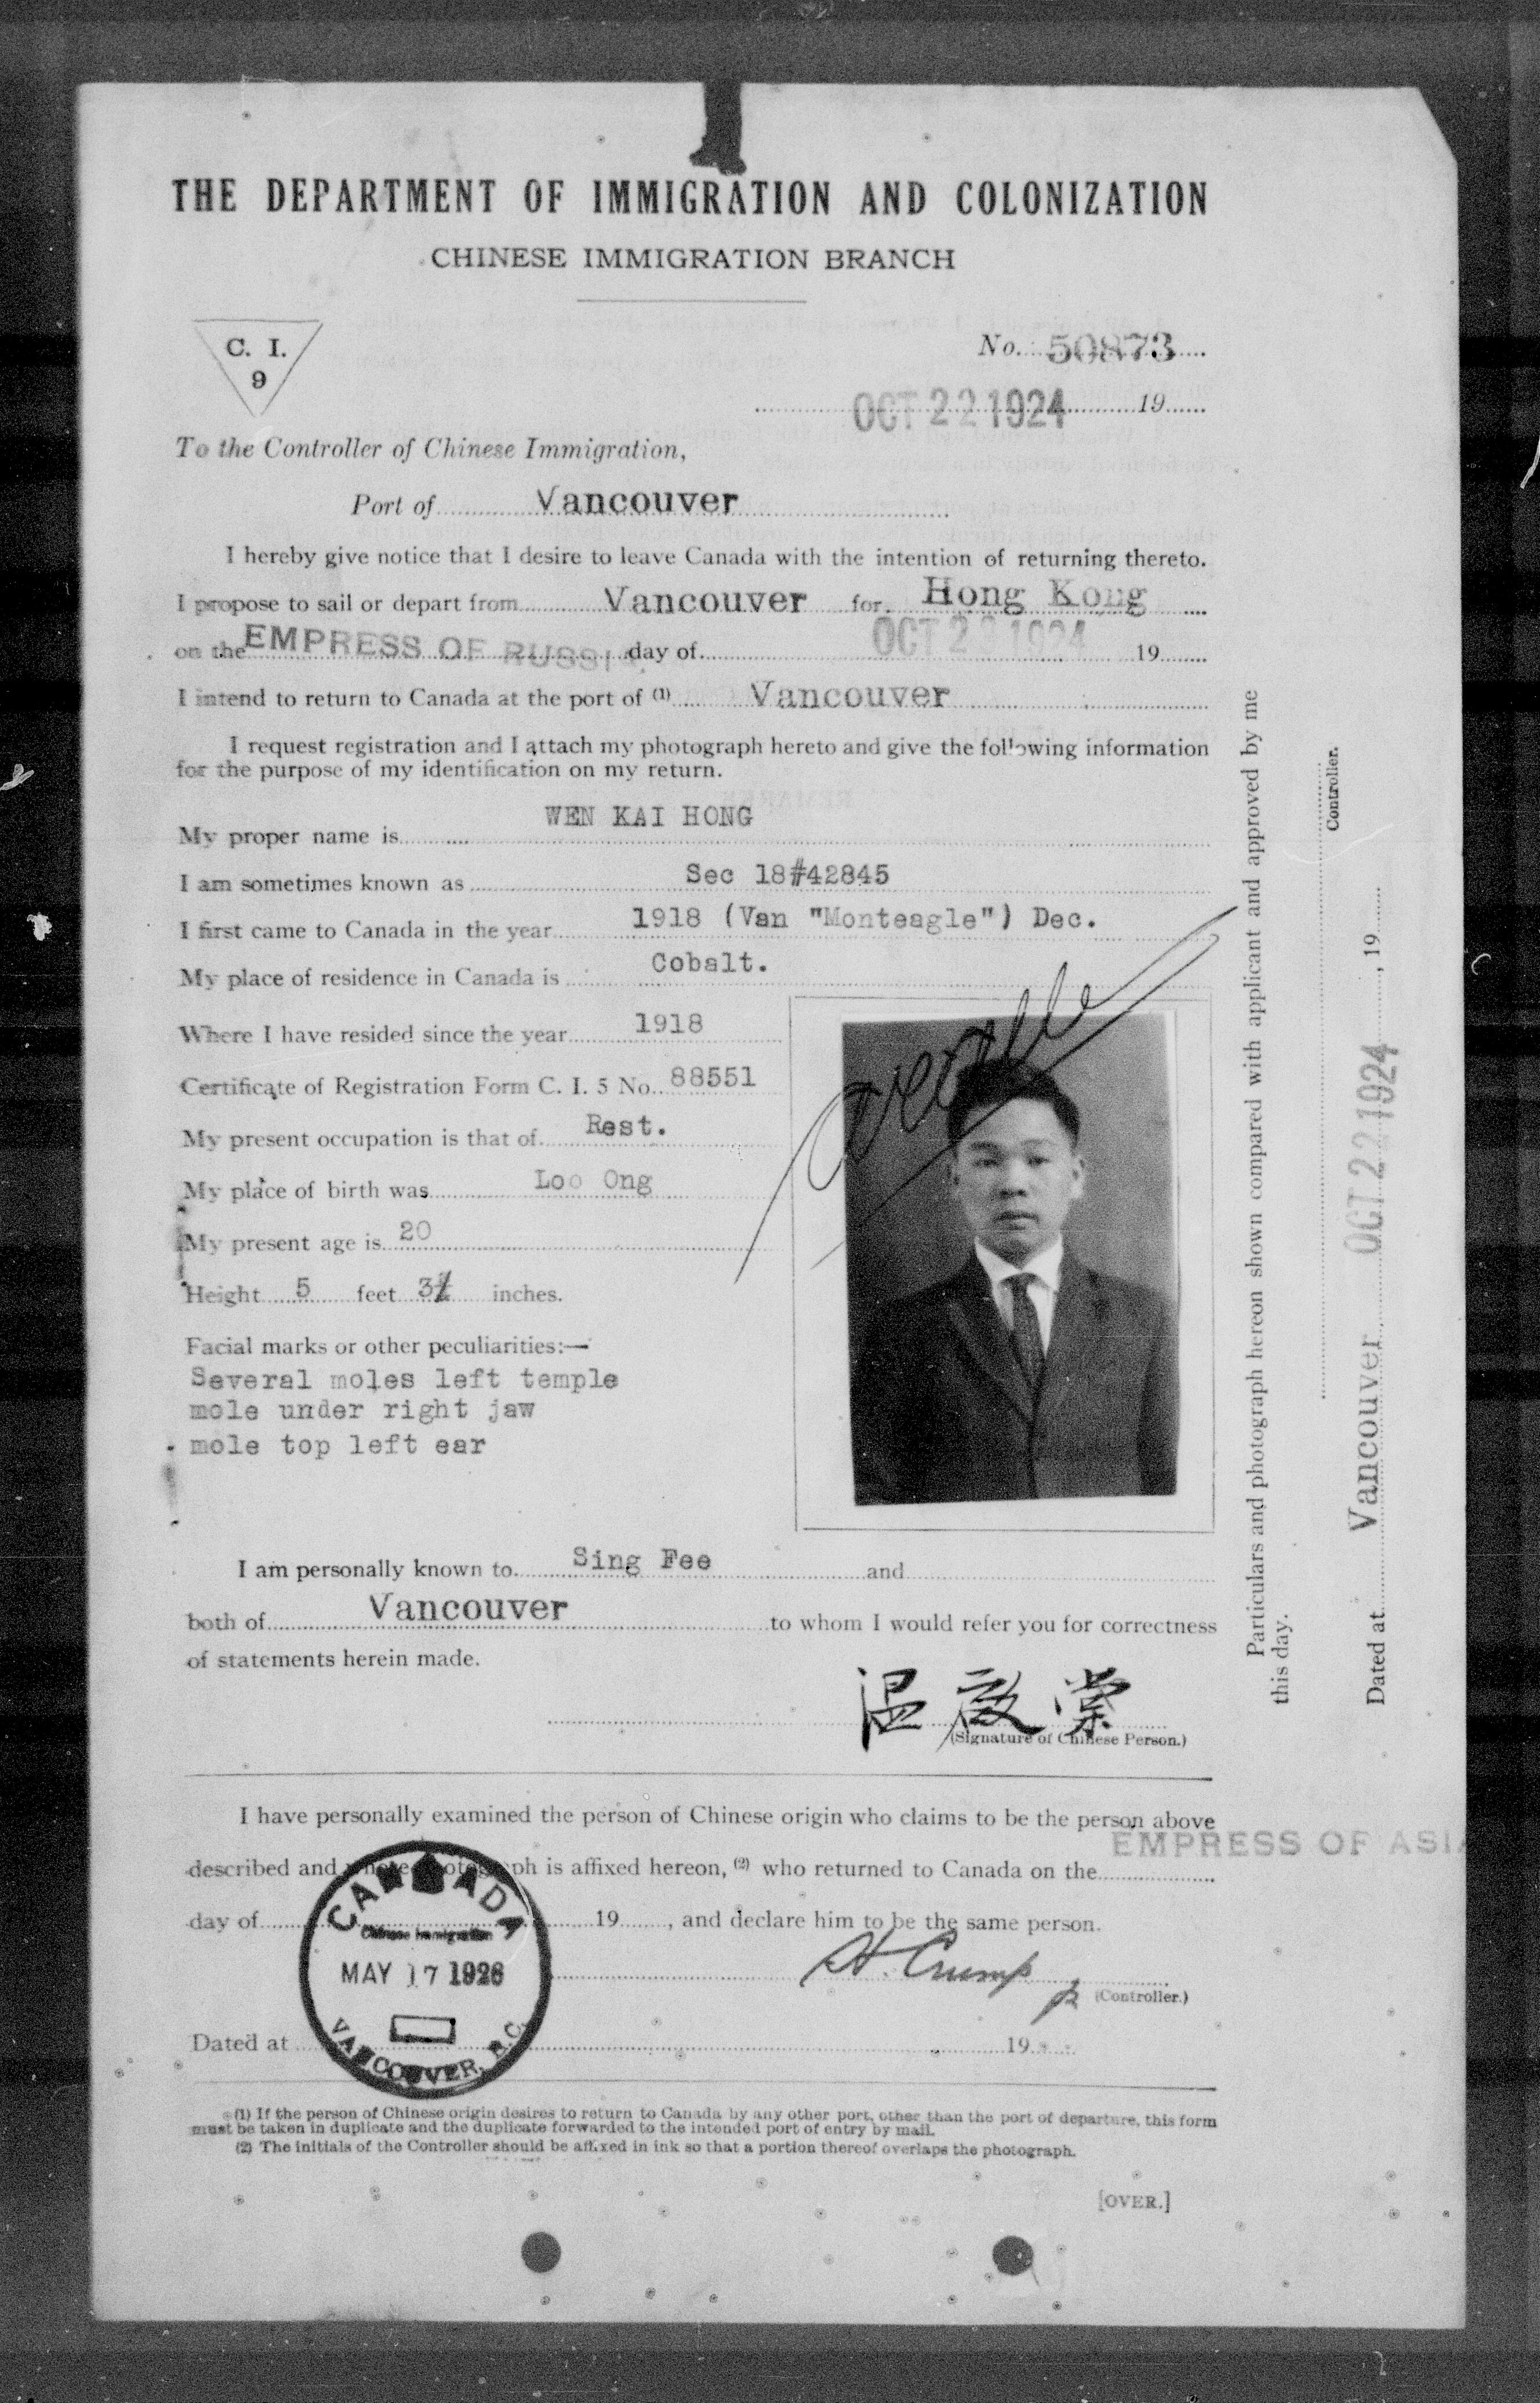 THE DEPARTMENT OF IMMIGRATION AND COLONIZATION
CHINESE IMMIGRATION BRANCH
C. I.
9
No. 50873
OCT 22 1924 19
To the Controller of Chinese Immigration,
Port of Vancouver
I hereby give notice that I desire to leave Canada with the intention of returning thereto.
I propose to sail or depart from Vancouver for Hong Kong
on the EMPRESS OF RUSSIA day of OCT 22 1924 19
I intend to return to Canada at the port of (1) Vancouver
I request registration and I attach my photograph hereto and give the following information
for the purpose of my identification on my return.
My proper name is WEN KAI HONG
I am sometimes known as Sec 18#42845
I first came to Canada in the year 1918 (Van "Monteagle") Dec.
My place of residence in Canada is Cobalt.
Where I have resided since the year 1918
Certificate of Registration Form C. I. 5 No. 88551
My present occupation is that of Rest.
My place of birth was Loo Ong
My present age is 20
Height 5 feet 3 inches.
Facial marks or other peculiarities:—
Several moles left temple
mole under right jaw
mole top left ear
I am personally known to Sing Fee and
both of Vancouver to whom I would refer you for correctness
of statements herein made.
温啟棠
(Signature of Chinese Person.)
Particulars and photograph hereon shown compared with applicant and approved by me
this day.
Controller.
Dated at Vancouver OCT 22 1924, 19
I have personally examined the person of Chinese origin who claims to be the person above
EMPRESS OF ASIA
described and whose photograph is affixed hereon, (2) who returned to Canada on the
day of 19, and declare him to be the same person.
H. Crump
(Controller.)
CANADA
Chinese Immigration
MAY 17 1926
VANCOUVER, B.C.
Dated at 19
(1) If the person of Chinese origin desires to return to Canada by any other port, other than the port of departure, this form
must be taken in duplicate and the duplicate forwarded to the intended port of entry by mail.
(2) The initials of the Controller should be affixed in ink so that a portion thereof overlaps the photograph.
[OVER.]